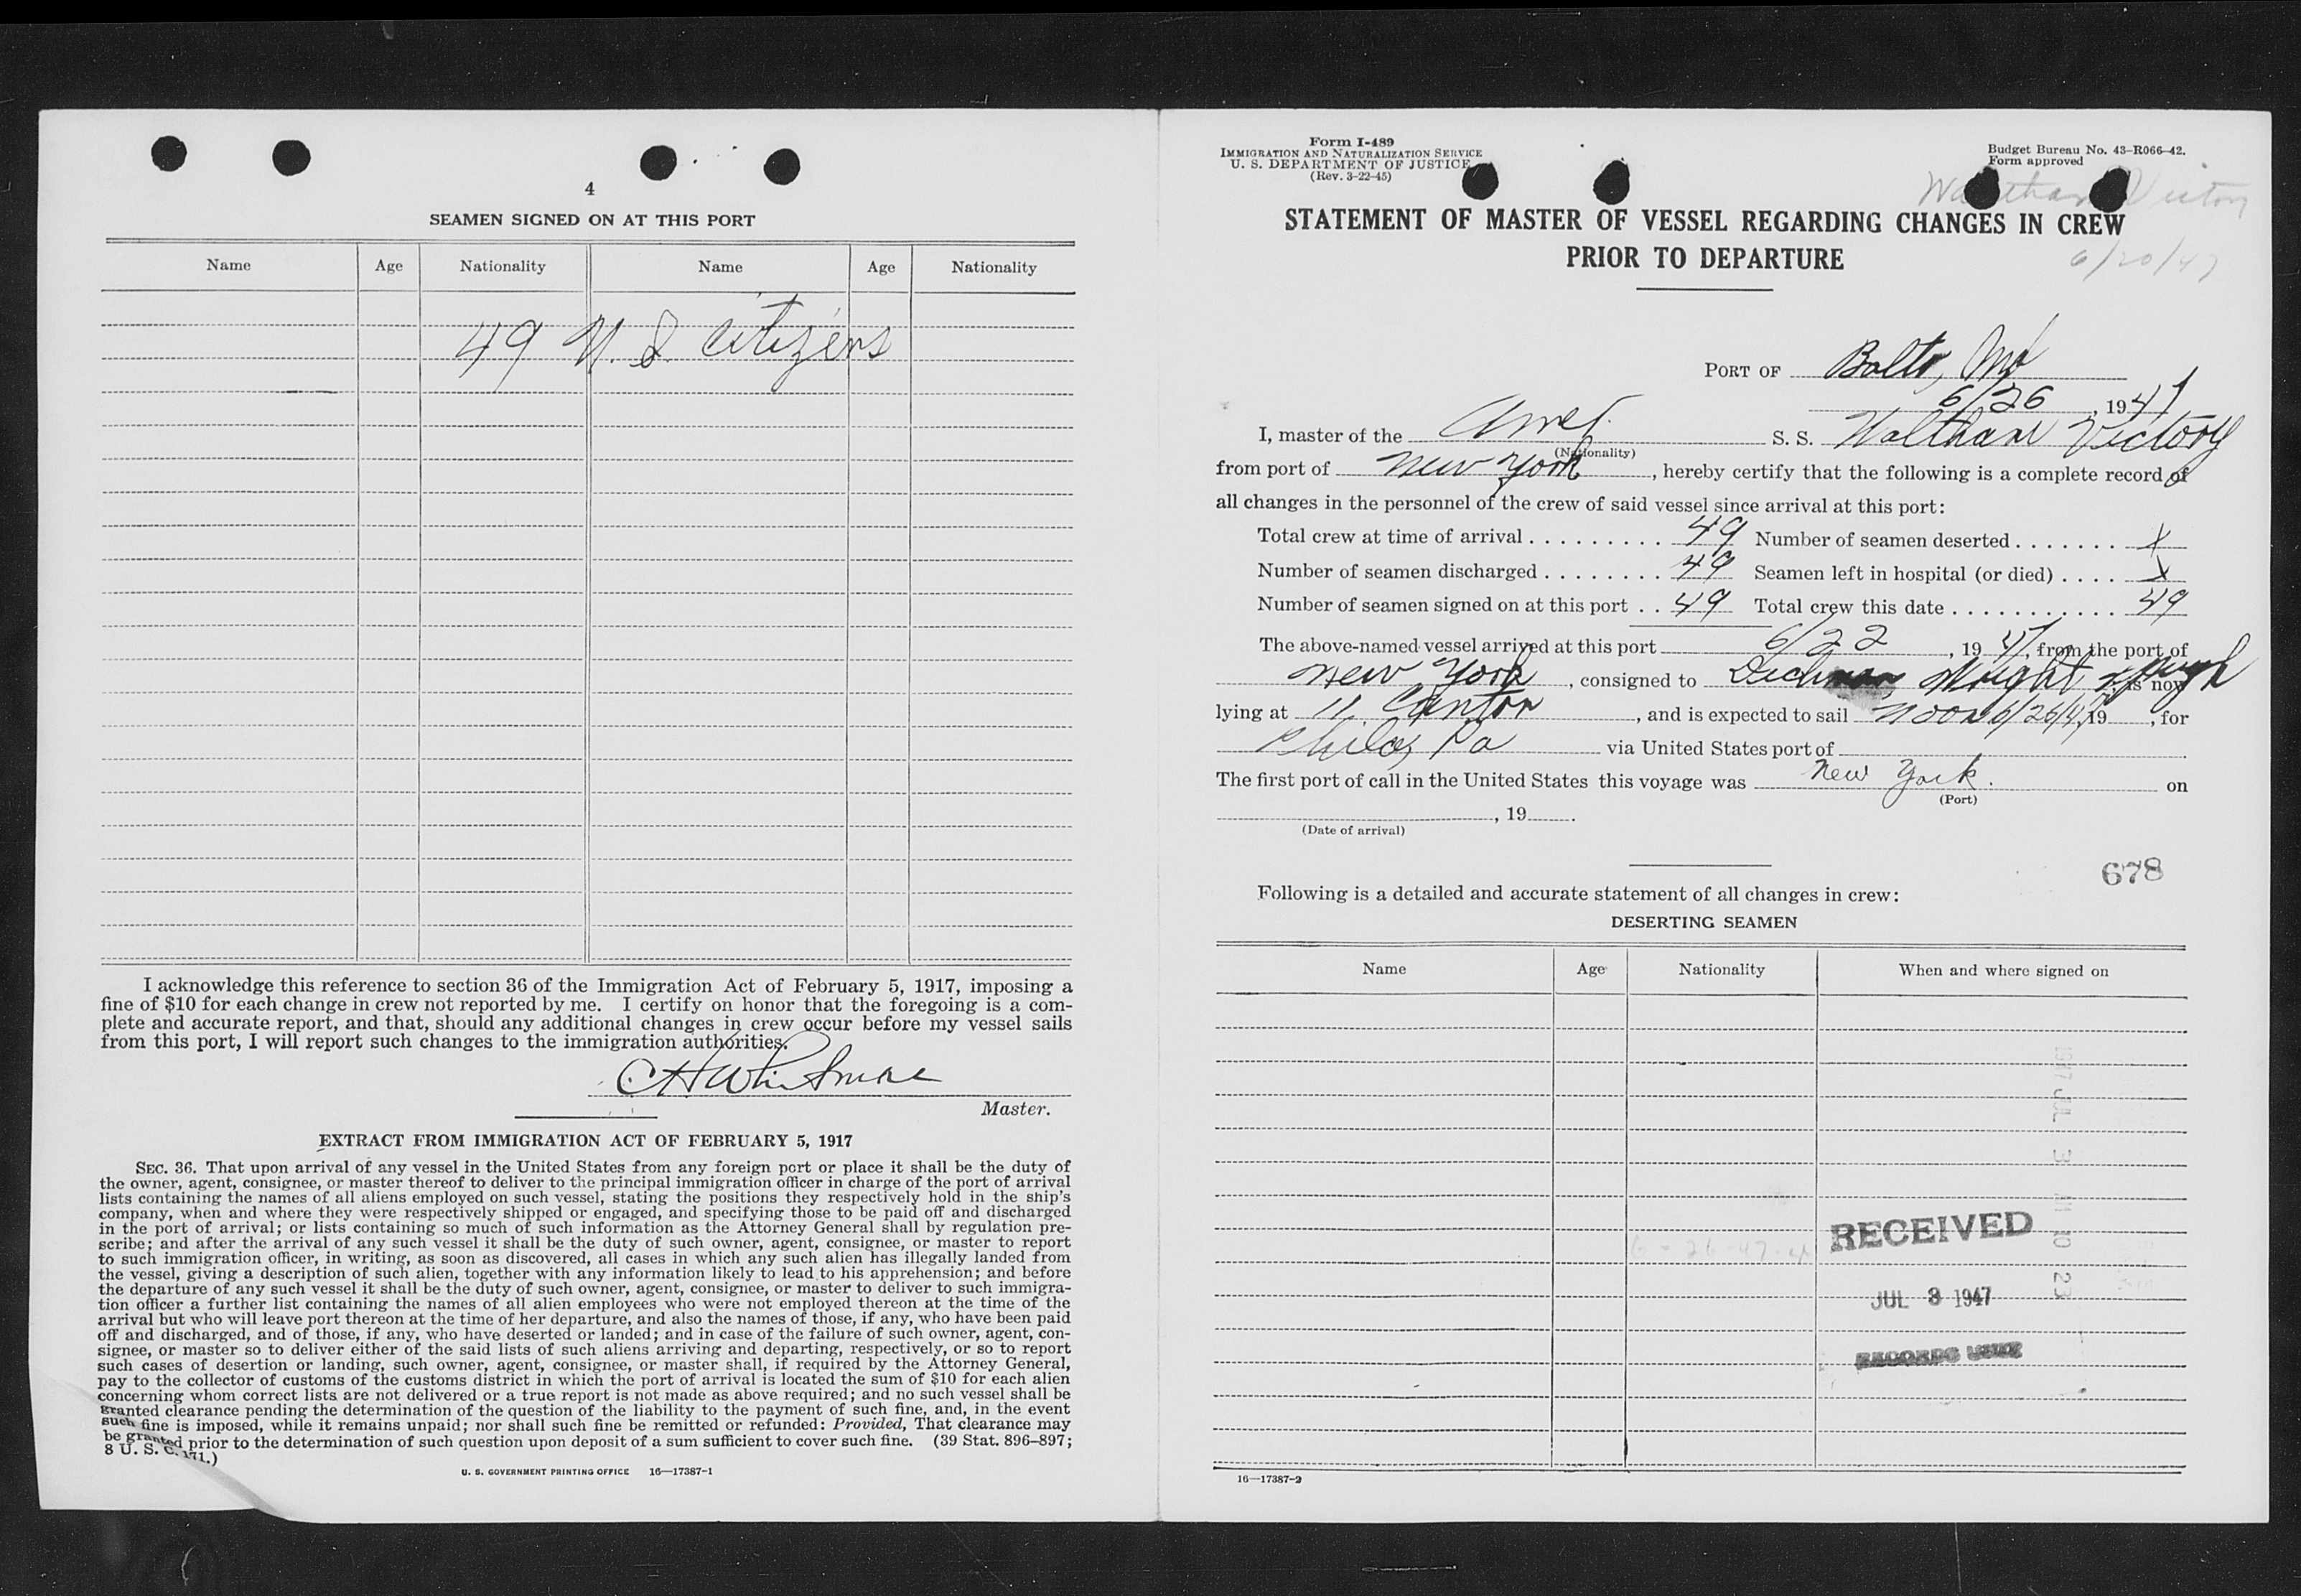 4
SEAMEN SIGNED ON AT THIS PORT
Name Age Nationality Name Age Nationality
49 U. S. Citizens
I acknowledge this reference to section 36 of the Immigration Act of February 5, 1917, imposing a
fine of $10 for each change in crew not reported by me. I certify on honor that the foregoing is a com-
plete and accurate report, and that, should any additional changes in crew occur before my vessel sails
from this port, I will report such changes to the immigration authorities.
Master.
EXTRACT FROM IMMIGRATION ACT OF FEBRUARY 5, 1917
SEC. 36. That upon arrival of any vessel in the United States from any foreign port or place it shall be the duty of
the owner, agent, consignee, or master thereof to deliver to the principal immigration officer in charge of the port of arrival
lists containing the names of all aliens employed on such vessel, stating the positions they respectively hold in the ship's
company, when and where they were respectively shipped or engaged, and specifying those to be paid off and discharged
in the port of arrival; or lists containing so much of such information as the Attorney General shall by regulation pre-
scribe; and after the arrival of any such vessel it shall be the duty of such owner, agent, consignee, or master to report
to such immigration officer, in writing, as soon as discovered, all cases in which any such alien has illegally landed from
the vessel, giving a description of such alien, together with any information likely to lead to his apprehension; and before
the departure of any such vessel it shall be the duty of such owner, agent, consignee, or master to deliver to such immigra-
tion officer a further list containing the names of all alien employees who were not employed thereon at the time of the
arrival but who will leave port thereon at the time of her departure, and also the names of those, if any, who have been paid
off and discharged, and of those, if any, who have deserted or landed; and in case of the failure of such owner, agent, con-
signee, or master so to deliver either of the said lists of such aliens arriving and departing, respectively, or so to report
such cases of desertion or landing, such owner, agent, consignee, or master shall, if required by the Attorney General,
pay to the collector of customs of the customs district in which the port of arrival is located the sum of $10 for each alien
concerning whom correct lists are not delivered or a true report is not made as above required; and no such vessel shall be
granted clearance pending the determination of the question of the liability to the payment of such fine, and, in the event
such fine is imposed, while it remains unpaid; nor shall such fine be remitted or refunded: Provided, That clearance may
be granted prior to the determination of such question upon deposit of a sum sufficient to cover such fine. (39 Stat. 896–897;
8 U. S. C. 171.)
U. S. GOVERNMENT PRINTING OFFICE 16—17387-1
Form I-489
IMMIGRATION AND NATURALIZATION SERVICE
U. S. DEPARTMENT OF JUSTICE
(Rev. 3-22-45)
Budget Bureau No. 43-R066-42.
Form approved
Waltham Victory
STATEMENT OF MASTER OF VESSEL REGARDING CHANGES IN CREW
PRIOR TO DEPARTURE
6/20/47
PORT OF Balto, Md
6/26, 1947
I, master of the Amer. S. S. Waltham Victory
(Nationality)
from port of New York, hereby certify that the following is a complete record of
all changes in the personnel of the crew of said vessel since arrival at this port:
Total crew at time of arrival 49 Number of seamen deserted x
Number of seamen discharged 49 Seamen left in hospital (or died) x
Number of seamen signed on at this port 49 Total crew this date 49
The above-named vessel arrived at this port 6/22, 1947, from the port of
New York, consigned to Dichman Wright & Pugh, is now
lying at Canton, and is expected to sail Noon 6/26/47, 19, for
Phila, Pa via United States port of
The first port of call in the United States this voyage was New York. on
(Port)
, 19
(Date of arrival)
678
Following is a detailed and accurate statement of all changes in crew:
DESERTING SEAMEN
Name Age Nationality When and where signed on
1947 JUL 3 AM 10 23
RECEIVED
JUL 3 1947
16—17387-2